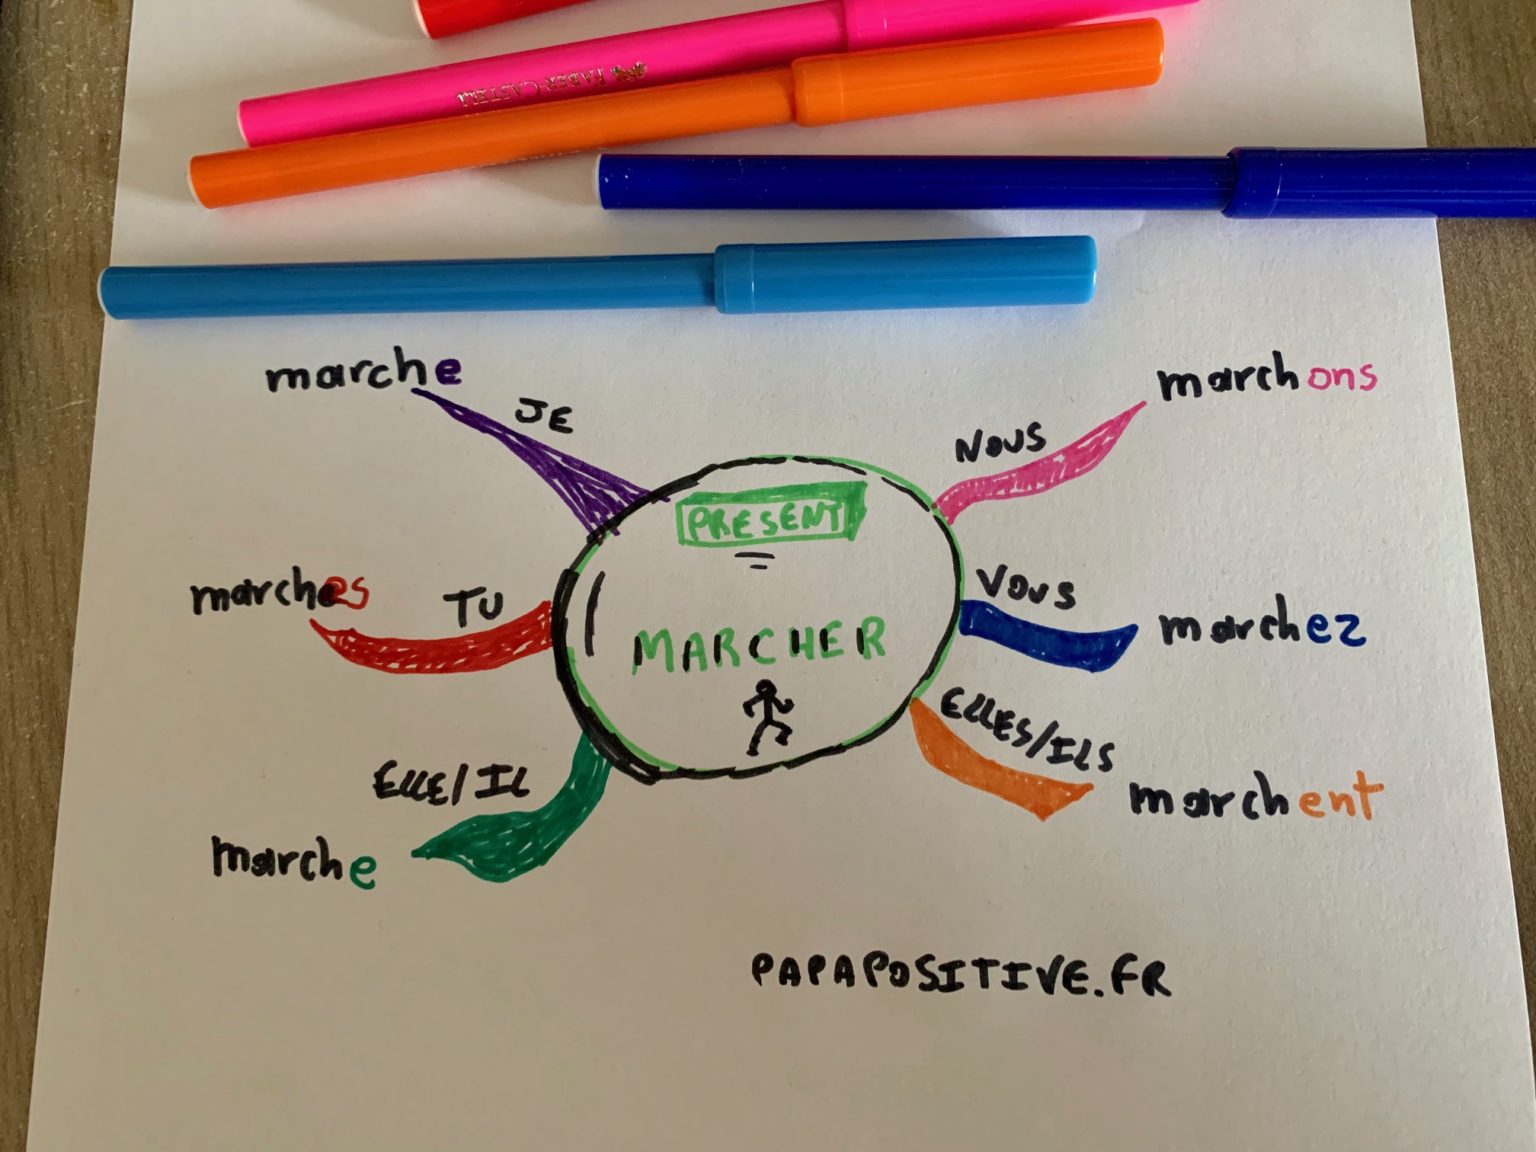 FABER-CASTELL
marche
JE
marchons
NOUS
PRESENT
marches
TU
VOUS
marchez
MARCHER
ELLE/IL
marche
ELLES/ILS
marchent
PAPAPOSITIVE.FR